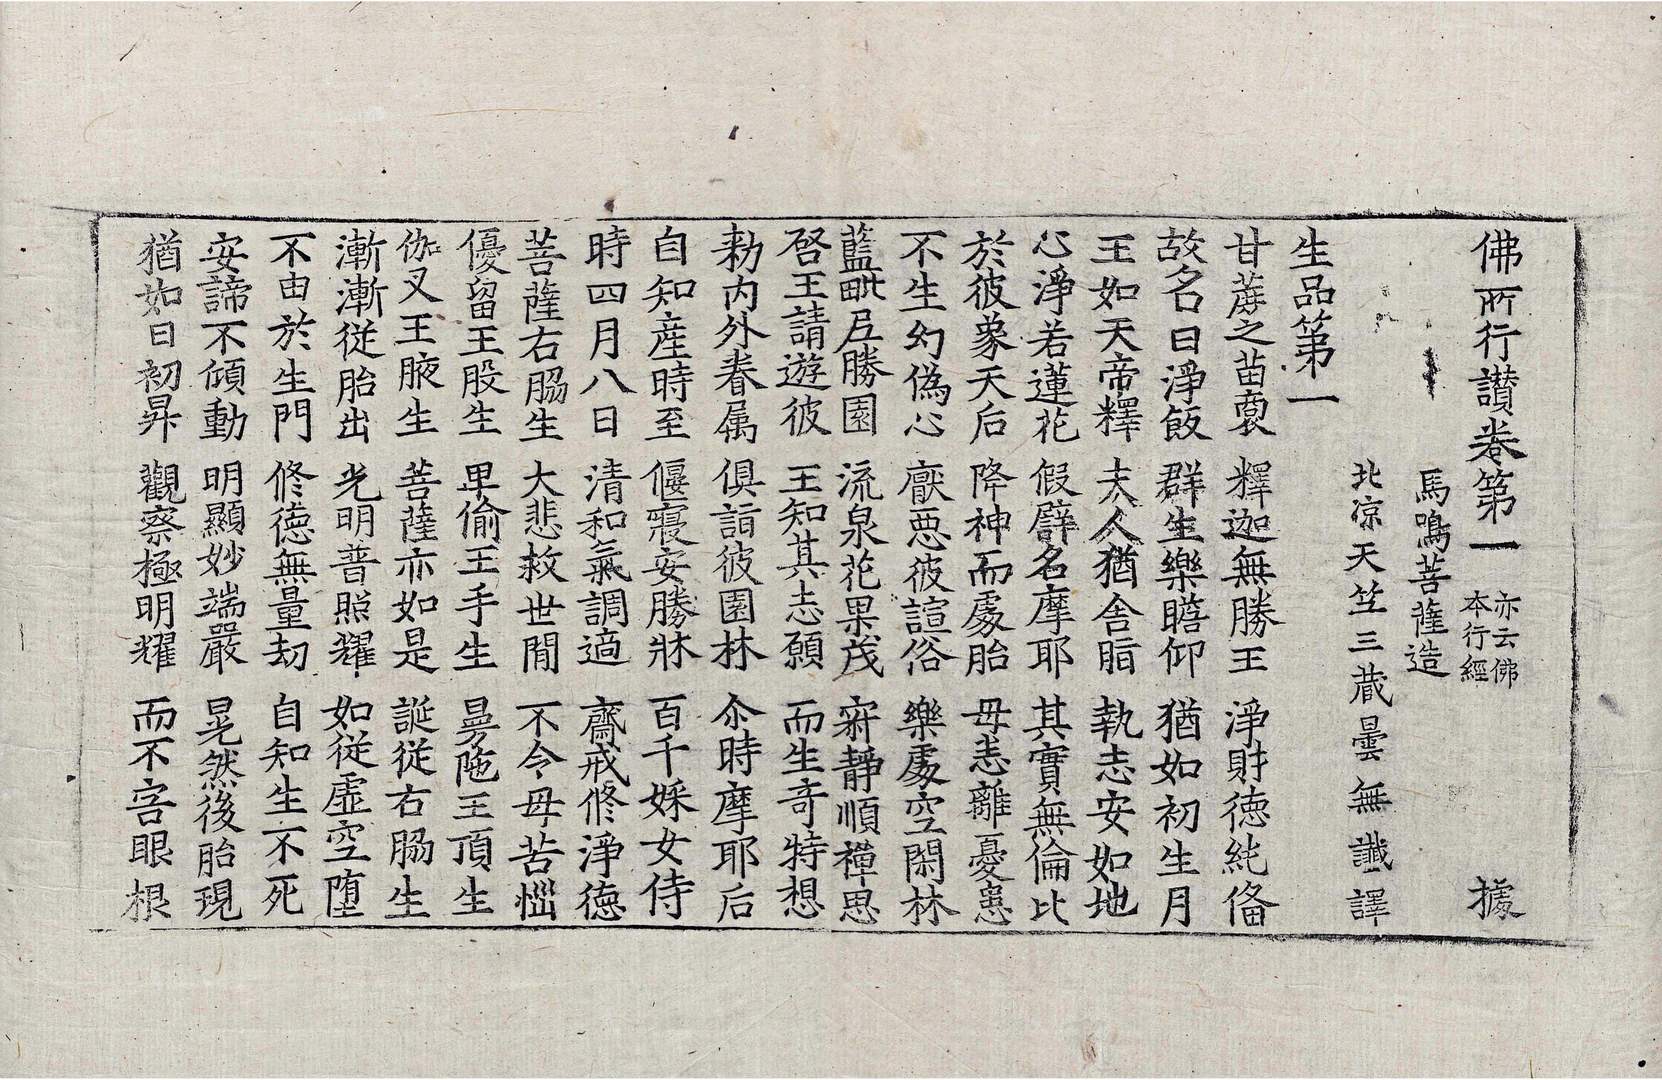 佛所行讃卷第一 亦云佛本行經 據
馬鳴菩薩造
北凉天竺三蔵曇無讖譯
生品第一
甘蔗之苗裔 釋迦無勝王 淨財德純俻
故名曰淨飯 群生樂瞻仰 猶如初生月
王如天帝釋 夫人猶舍脂 執志安如地
心淨若蓮花 假譬名摩耶 其實無倫比
於彼象天后 降神而處胎 毋悉離憂患
不生幻偽心 厭惡彼諠俗 樂處空閑林
藍毗尼勝園 流泉花果茂 寂靜順禪思
啓王請遊彼 王知其志願 而生奇特想
勑内外眷属 俱詣彼園林 尒時摩耶后
自知産時至 偃寢安勝牀 百千婇女侍
時四月八日 清和氣調適 齋戒修淨德
菩薩右脇生 大悲救世間 不令母苦惱
優留王股生 畀偷王手生 曼陁王頂生
伽叉王腋生 菩薩亦如是 誕從右脇生
漸漸從胎出 光明普照耀 如從虛空堕
不由於生門 修德無量劫 自知生不死
安諦不傾動 明顯妙端嚴 晃然後胎現
猶如日初昇 觀察極明耀 而不害眼根